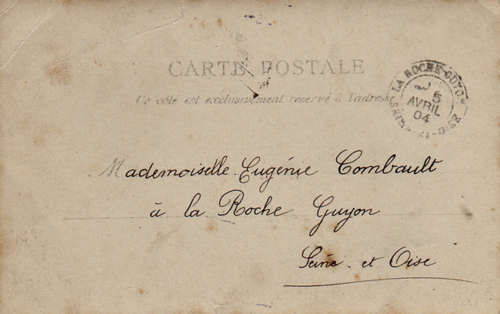 CARTE POSTALE
Ce côté est exclusivement reservé à l'adresse
LA ROCHE-GUYON
5
AVRIL
04
Mademoiselle Eugénie Combault
à la Roche Guyon
Seine et Oise